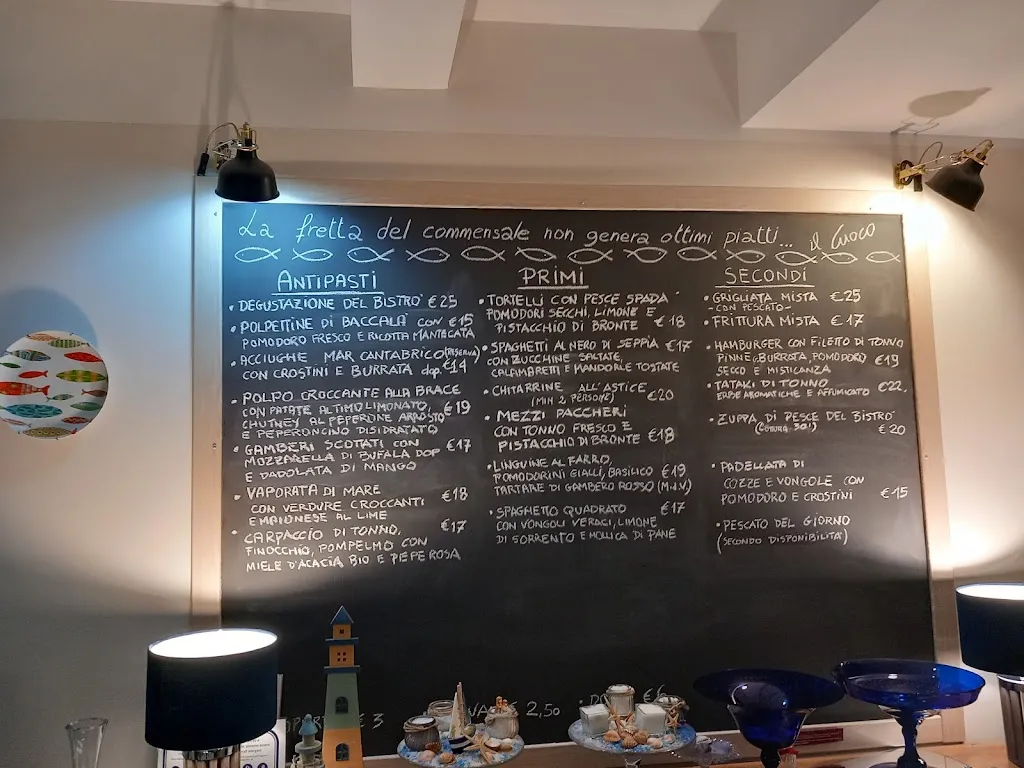 La fretta del commensale non genera ottimi piatti... il Cuoco
ANTIPASTI
• DEGUSTAZIONE DEL BISTRO' €25
• POLPETTINE DI BACCALA' CON €15
POMODORO FRESCO E RICOTTA MANTECATA
• ACCIUGHE MAR CANTABRICO (RISERVA)
CON CROSTINI E BURRATA dop. €14
• POLPO CROCCANTE ALLA BRACE
CON PATATE AL TIMO LIMONATO, €19
CHUTNEY AL PEPERONE ARROSTO
E PEPERONCINO DISIDRATATO
• GAMBERI SCOTTATI CON €17
MOZZARELLA DI BUFALA DOP
E DADOLATA DI MANGO
• VAPORATA DI MARE €18
CON VERDURE CROCCANTI
E MAIONESE AL LIME
• CARPACCIO DI TONNO, €17
FINOCCHIO, POMPELMO CON
MIELE D'ACACIA BIO E PEPE ROSA
PRIMI
• TORTELLI CON PESCE SPADA
POMODORI SECCHI, LIMONE E
PISTACCHIO DI BRONTE €18
• SPAGHETTI AL NERO DI SEPPIA €17
CON ZUCCHINE SALTATE,
CALAMARETTI E MANDORLE TOSTATE
• CHITARRINE ALL'ASTICE
(MIN 2 PERSONE) €20
• MEZZI PACCHERI
CON TONNO FRESCO E
PISTACCHIO DI BRONTE €18
• LINGUINE AL FARRO,
POMODORINI GIALLI, BASILICO €19
TARTARE DI GAMBERO ROSSO
• SPAGHETTO QUADRATO €17
CON VONGOLE VERACI, LIMONE
DI SORRENTO E MOLLICA DI PANE
SECONDI
• GRIGLIATA MISTA €25
- CON PESCATO -
• FRITTURA MISTA €17
• HAMBURGER CON FILETTO DI TONNO
PINNE BURRATA, POMODORO €19
SECCO E MISTICANZA
• TATAKI DI TONNO €22,
ERBE AROMATICHE E AFFUMICATO
• ZUPPA DI PESCE DEL BISTRO'
(COTTURA 30') €20
• PADELLATA DI
COZZE E VONGOLE CON
POMODORO E CROSTINI €15
• PESCATO DEL GIORNO
(SECONDO DISPONIBILITA')
€ 3
€ 2,50
€ 6